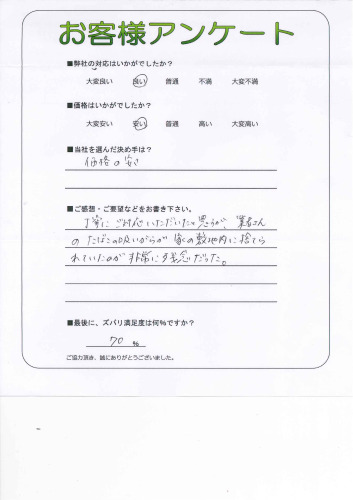 お客様アンケート
■弊社の対応はいかがでしたか？
大変良い 良い 普通 不満 大変不満
■価格はいかがでしたか？
大変安い 安い 普通 高い 大変高い
■当社を選んだ決め手は？
価格の安さ
■ご感想・ご要望などをお書き下さい。
丁寧にご対応いただいたと思うが、業者さん
のたばこの吸いがらが家の敷地内に捨てら
れていたのが非常に残念だった。
■最後に、ズバリ満足度は何%ですか？
70 %
ご協力頂き、誠にありがとうございました。